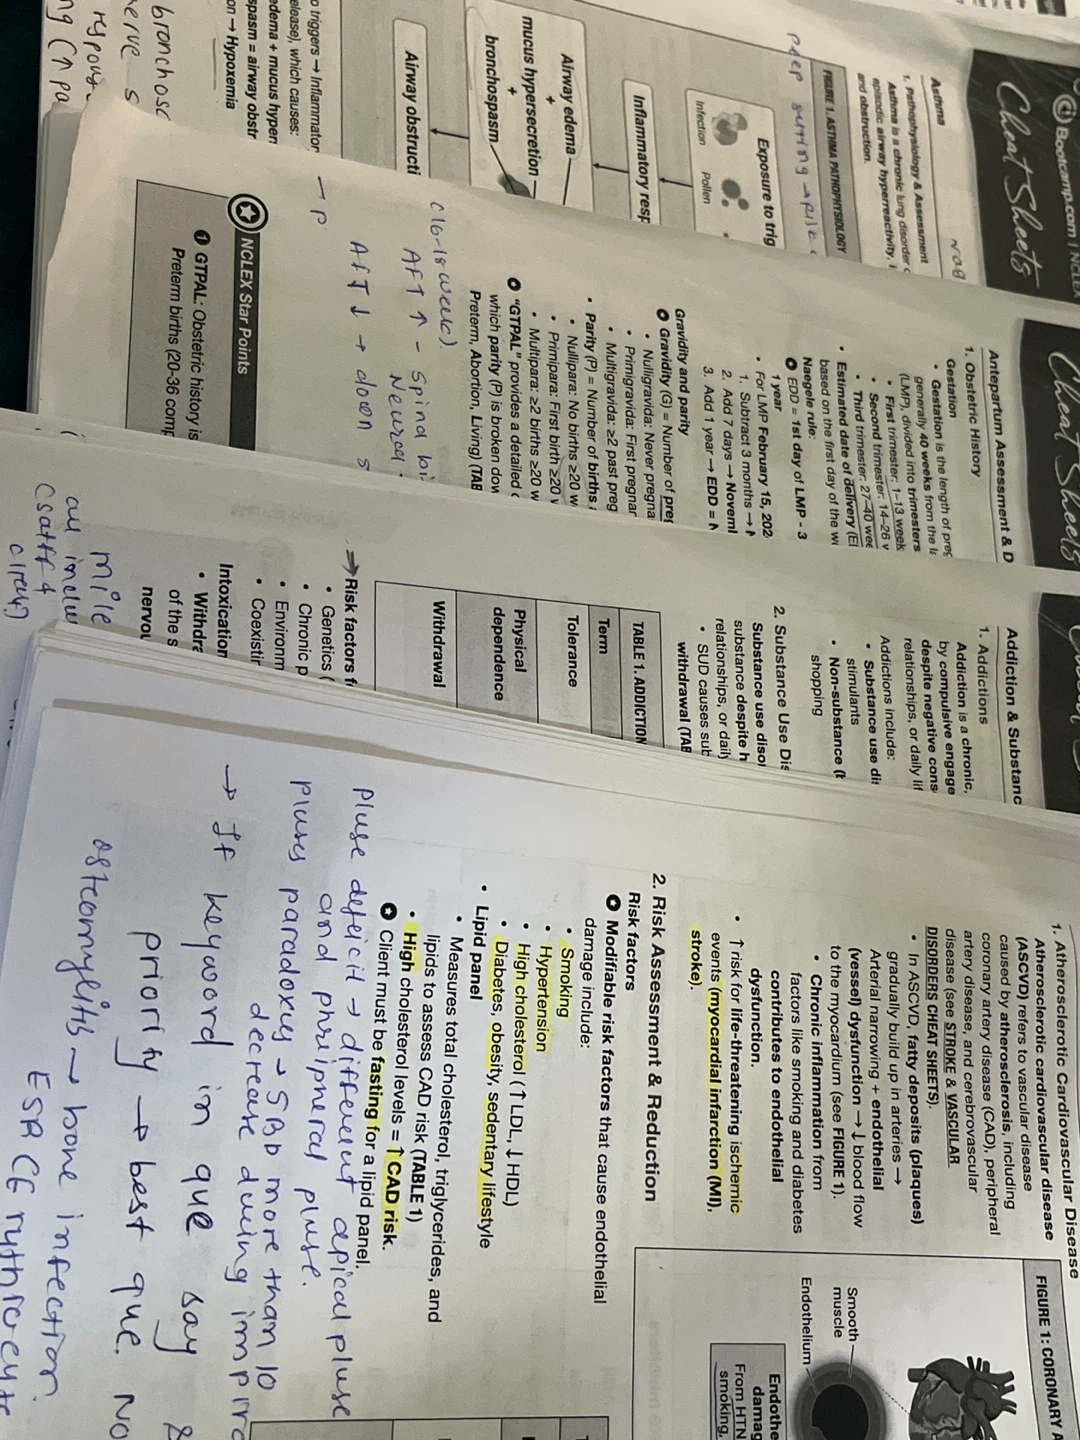 Bootcamp.com | NCLEX
Cheat Sheets
Asthma
1. Pathophysiology & Assessment
Asthma is a chronic lung disorder
episodic airway hyperreactivity,
and obstruction.
FIGURE 1. ASTHMA PATHOPHYSIOLOGY
peep
Exposure to trig
Infection
Pollen
Inflammatory resp
Airway edema
+
mucus hypersecretion
+
bronchospasm
Airway obstructi
o triggers → Inflammator
elease), which causes:
edema + mucus hyper
spasm = airway obstr
on → Hypoxemia
bronchosc
nerve s
Cheat Sheets
Antepartum Assessment & D
1. Obstetric History
Gestation
• Gestation is the length of preg
generally 40 weeks from the la
(LMP), divided into trimesters
• First trimester: 1–13 week
• Second trimester: 14–26 w
• Third trimester: 27–40 wee
• Estimated date of delivery (E
based on the first day of the w
Naegele rule:
EDD = 1st day of LMP - 3
1 year
• For LMP February 15, 202
1. Subtract 3 months →
2. Add 7 days → Novemb
3. Add 1 year → EDD = N
Gravidity and parity
Gravidity (G) = Number of preg
• Nulligravida: Never pregna
• Primigravida: First pregnar
• Multigravida: ≥2 past preg
• Parity (P) = Number of births
• Nullipara: No births ≥20 w
• Primipara: First birth ≥20
• Multipara: ≥2 births ≥20 w
"GTPAL" provides a detailed
which parity (P) is broken dow
Preterm, Abortion, Living) (TAB
(16-18 week).
AFT ↑ - Spina bi
Neural
AFT ↓ → down s
→ P
NCLEX Star Points
1 GTPAL: Obstetric history is
Preterm births (20-36 comp
Addiction & Substanc
1. Addictions
Addiction is a chronic,
by compulsive engage
despite negative cons
relationships, or daily lif
Addictions include:
• Substance use dis
stimulants
• Non-substance (
shopping
2. Substance Use Dis
Substance use disor
substance despite h
relationships, or daily
• SUD causes sub
withdrawal (TAB
TABLE 1. ADDICTION
Term
Tolerance
Physical
dependence
Withdrawal
Risk factors f
• Genetics (
• Chronic p
• Environm
• Coexistin
Intoxication
• Withdra
of the s
nervou
mile
all inclu
1. Atherosclerotic Cardiovascular Disease
Atherosclerotic cardiovascular disease
(ASCVD) refers to vascular disease
caused by atherosclerosis, including
coronary artery disease (CAD), peripheral
artery disease, and cerebrovascular
disease (see STROKE & VASCULAR
DISORDERS CHEAT SHEETS).
• In ASCVD, fatty deposits (plaques)
gradually build up in arteries →
Arterial narrowing + endothelial
(vessel) dysfunction → ↓ blood flow
to the myocardium (see FIGURE 1).
• Chronic inflammation from
factors like smoking and diabetes
contributes to endothelial
dysfunction.
• ↑ risk for life-threatening ischemic
events (myocardial infarction (MI),
stroke).
2. Risk Assessment & Reduction
Risk factors
Modifiable risk factors that cause endothelial
damage include:
• Smoking
• Hypertension
• High cholesterol (↑ LDL, ↓ HDL)
• Diabetes, obesity, sedentary lifestyle
• Lipid panel
• Measures total cholesterol, triglycerides, and
lipids to assess CAD risk (TABLE 1)
• High cholesterol levels = ↑ CAD risk.
Client must be fasting for a lipid panel.
FIGURE 1: CORONARY A
Smooth
muscle
Endothelium
Endothe
damag
From HTN
smoking,
pluse deficit → different apical pluse
and phripheral pluse.
pluses paradoxus → SBP more than 10
decrease during inspira
→ If keyword in que say
priority → best que. No
osteomylitis → bone infection.
ESR